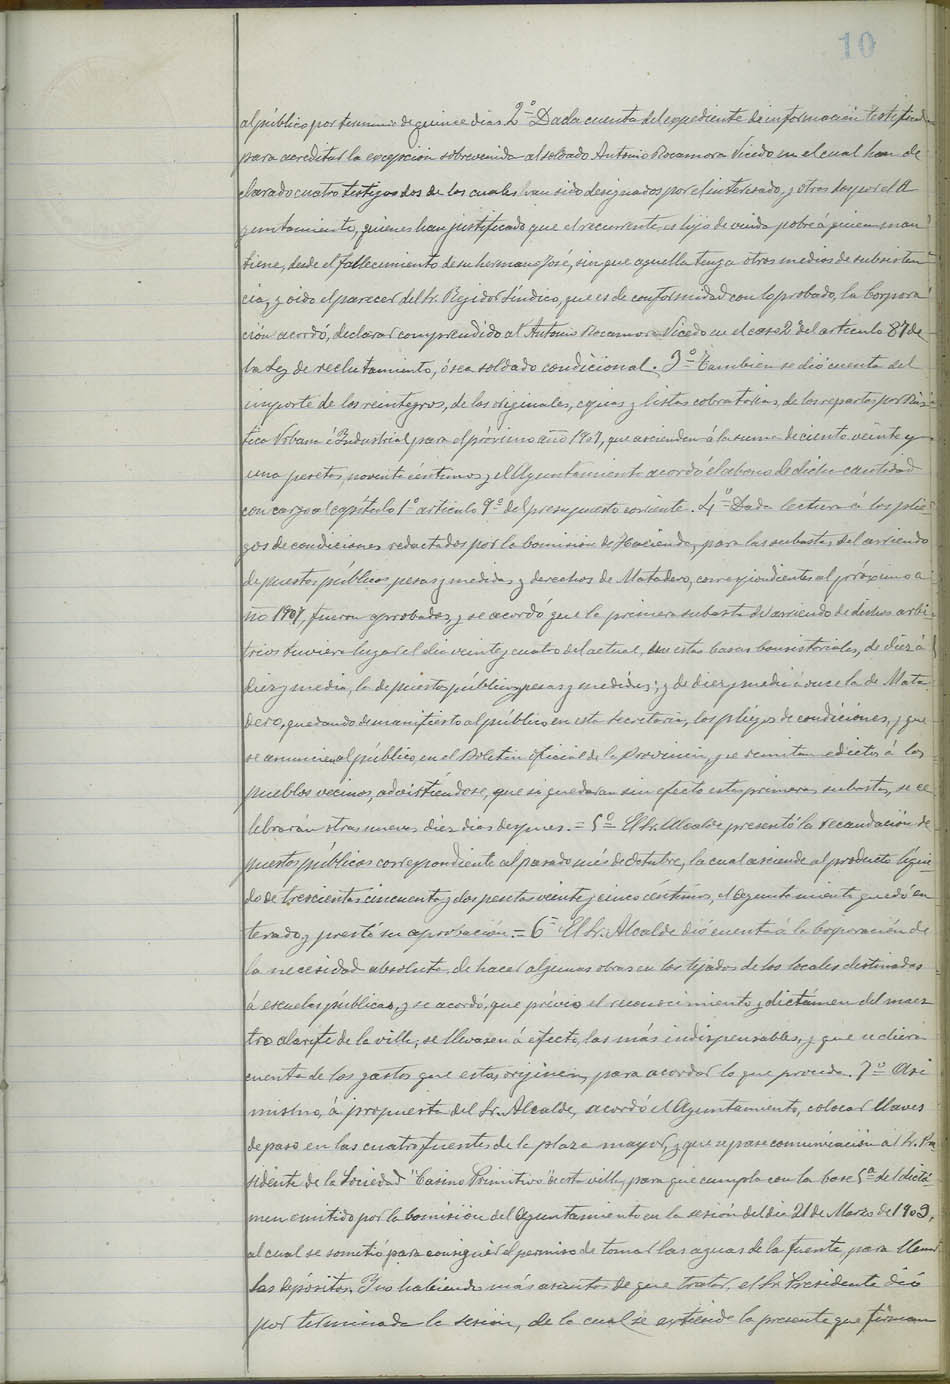 10
al público por termino de quince dias 2º Dada cuenta del expediente de información testifical
para acreditar la excepción sobrevenida al soldado Antonio Rocamora Vicedo en el cual han de
clarado cuatro testigos dos de los cuales han sido designados por el interesado, y otros dos por el A
yuntamiento, quienes han justificado que el recurrente es hijo de viuda pobre á quien man
tiene, desde el fallecimiento de su hermano José, sin que aquella tenga otros medios de subsisten
cia, y oido el parecer del Sr. Regidor Síndico, que es de conformidad con lo probado, la Corpora
ción acordó, declarar comprendido al Antonio Rocamora Vicedo en el caso 2º del articulo 87 de
la Ley de reclutamiento, ó sea soldado condicional. 3º Tambien se dió cuenta del
importe de los reintegros, de los originales, copias y listas cobratorias, de los repartos por Rús
tica Urbana é Industrial para el próximo año 1907, que ascienden á la suma de ciento veinte y
una pesetas, noventa céntimos, y el Ayuntamiento acordó el abono de dicha cantidad
con cargo al capítulo 1º articulo 9º del presupuesto corriente. 4º Dada lectura á los plie
gos de condiciones redactados por la Comisión de Hacienda, para las subastas del arriendo
de puestos públicos, pesas y medidas y derechos de Matadero, correspondientes al próximo a
ño 1907, fueron aprobados, y se acordó que la primera subasta de arriendo de dichos arbi
trios tuviera lugar el dia veinte y cuatro del actual, en estas casas Consistoriales, de diez á
diez y media, la de puestos públicos, pesas y medidas; y de diez y media á once la de Mata
dero, quedando de manifiesto al público en esta Secretaria, los pliegos de condiciones, y que
se anuncien al público en el Boletin oficial de la Provincia, y se remitan edictos á los
pueblos vecinos, advirtiéndose, que si quedaran sin efecto estas primeras subastas, se ce
lebrarán otras nuevas diez dias despues. = 5º El Sr. Alcalde presentó la recaudación de
puestos públicos correspondiente al pasado més de Octubre, la cual asciende al producto líqui
do de trescientas cincuenta y dos pesetas veinte y cinco céntimos, el Ayuntamiento quedó en
terado y prestó su aprobación = 6º El Sr. Alcalde dió cuenta á la Corporación de
la necesidad absoluta, de hacer algunas obras en los tejados de los locales destinados
á escuelas públicas, y se acordó, que prévio el reconocimiento y dictámen del maes
tro alarife de la villa, se llevasen á efecto, las más indispensables, y que se diera
cuenta de los gastos que estas originen, para acordar lo que proceda. 7º Asi
mismo, á propuesta del Sr. Alcalde, acordó el Ayuntamiento, colocar llaves
de paso en las cuatro fuentes de la plaza mayor, y que se pase comunicación al Sr. Pre
sidente de la Sociedad "Casino Primitivo" de esta villa, para que cumpla con la base 5ª del dictá
men emitido por la Comisión del Ayuntamiento en la sesión del dia 21 de Marzo de 1903,
al cual se sometió para conseguir el permiso de tomar las aguas de la fuente, para llenar
las depósitos. Y no habiendo más asuntos de que tratar, el Sr. Presidente dió
por terminada la sesión, de la cual se extiende la presente que firman